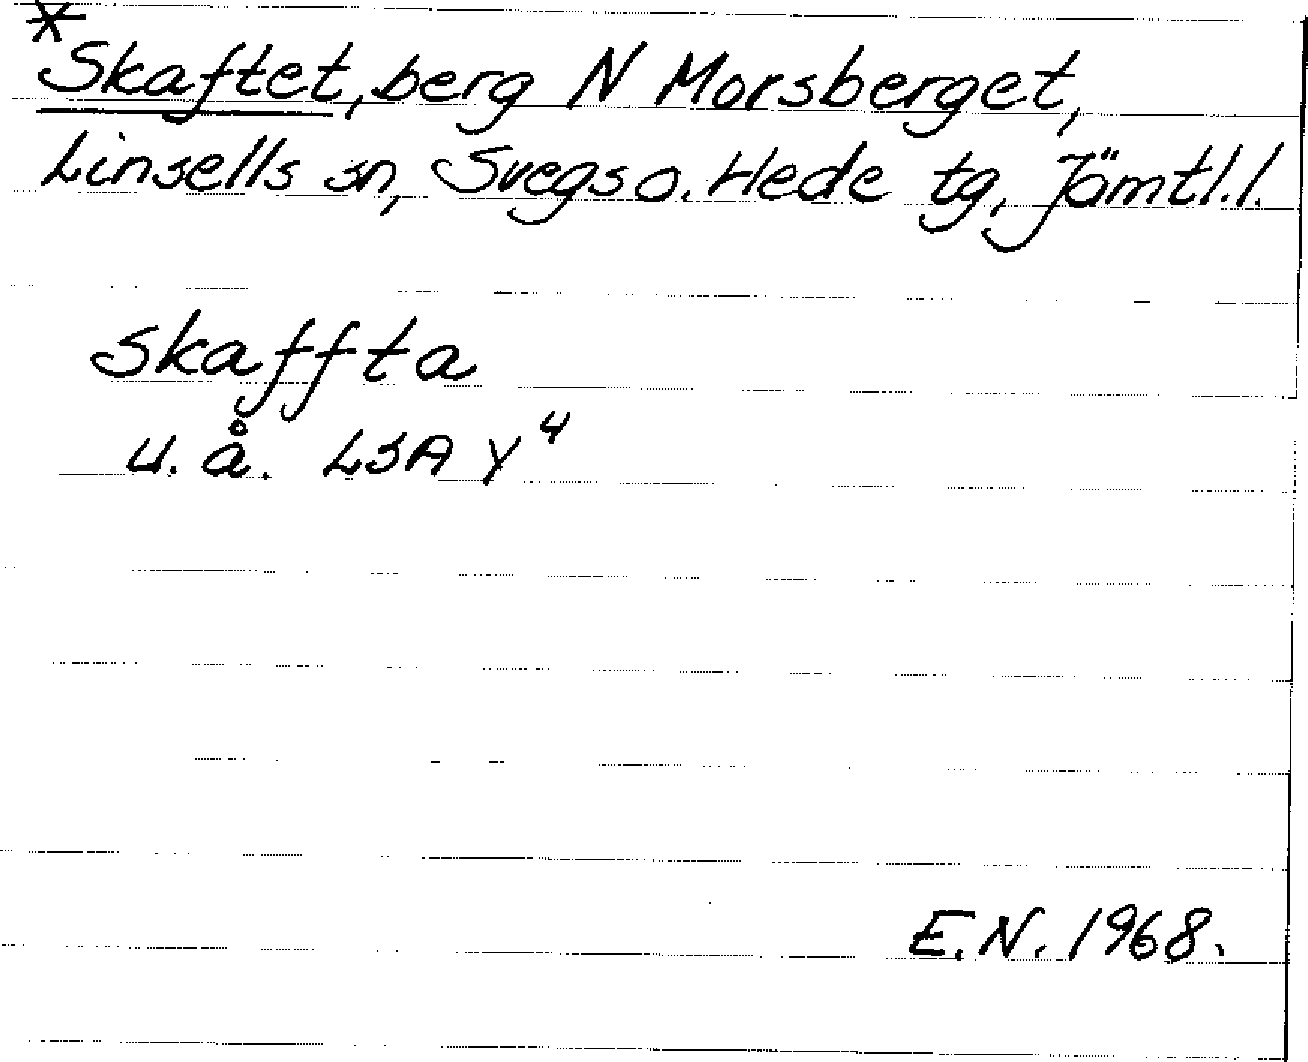 *Skaftet, berg N Morsberget,
Linsells sn, Svegs o. Hede tg, Jämtl. l.
skaffta
u. å. LSA Y⁴
E.N. 1968.